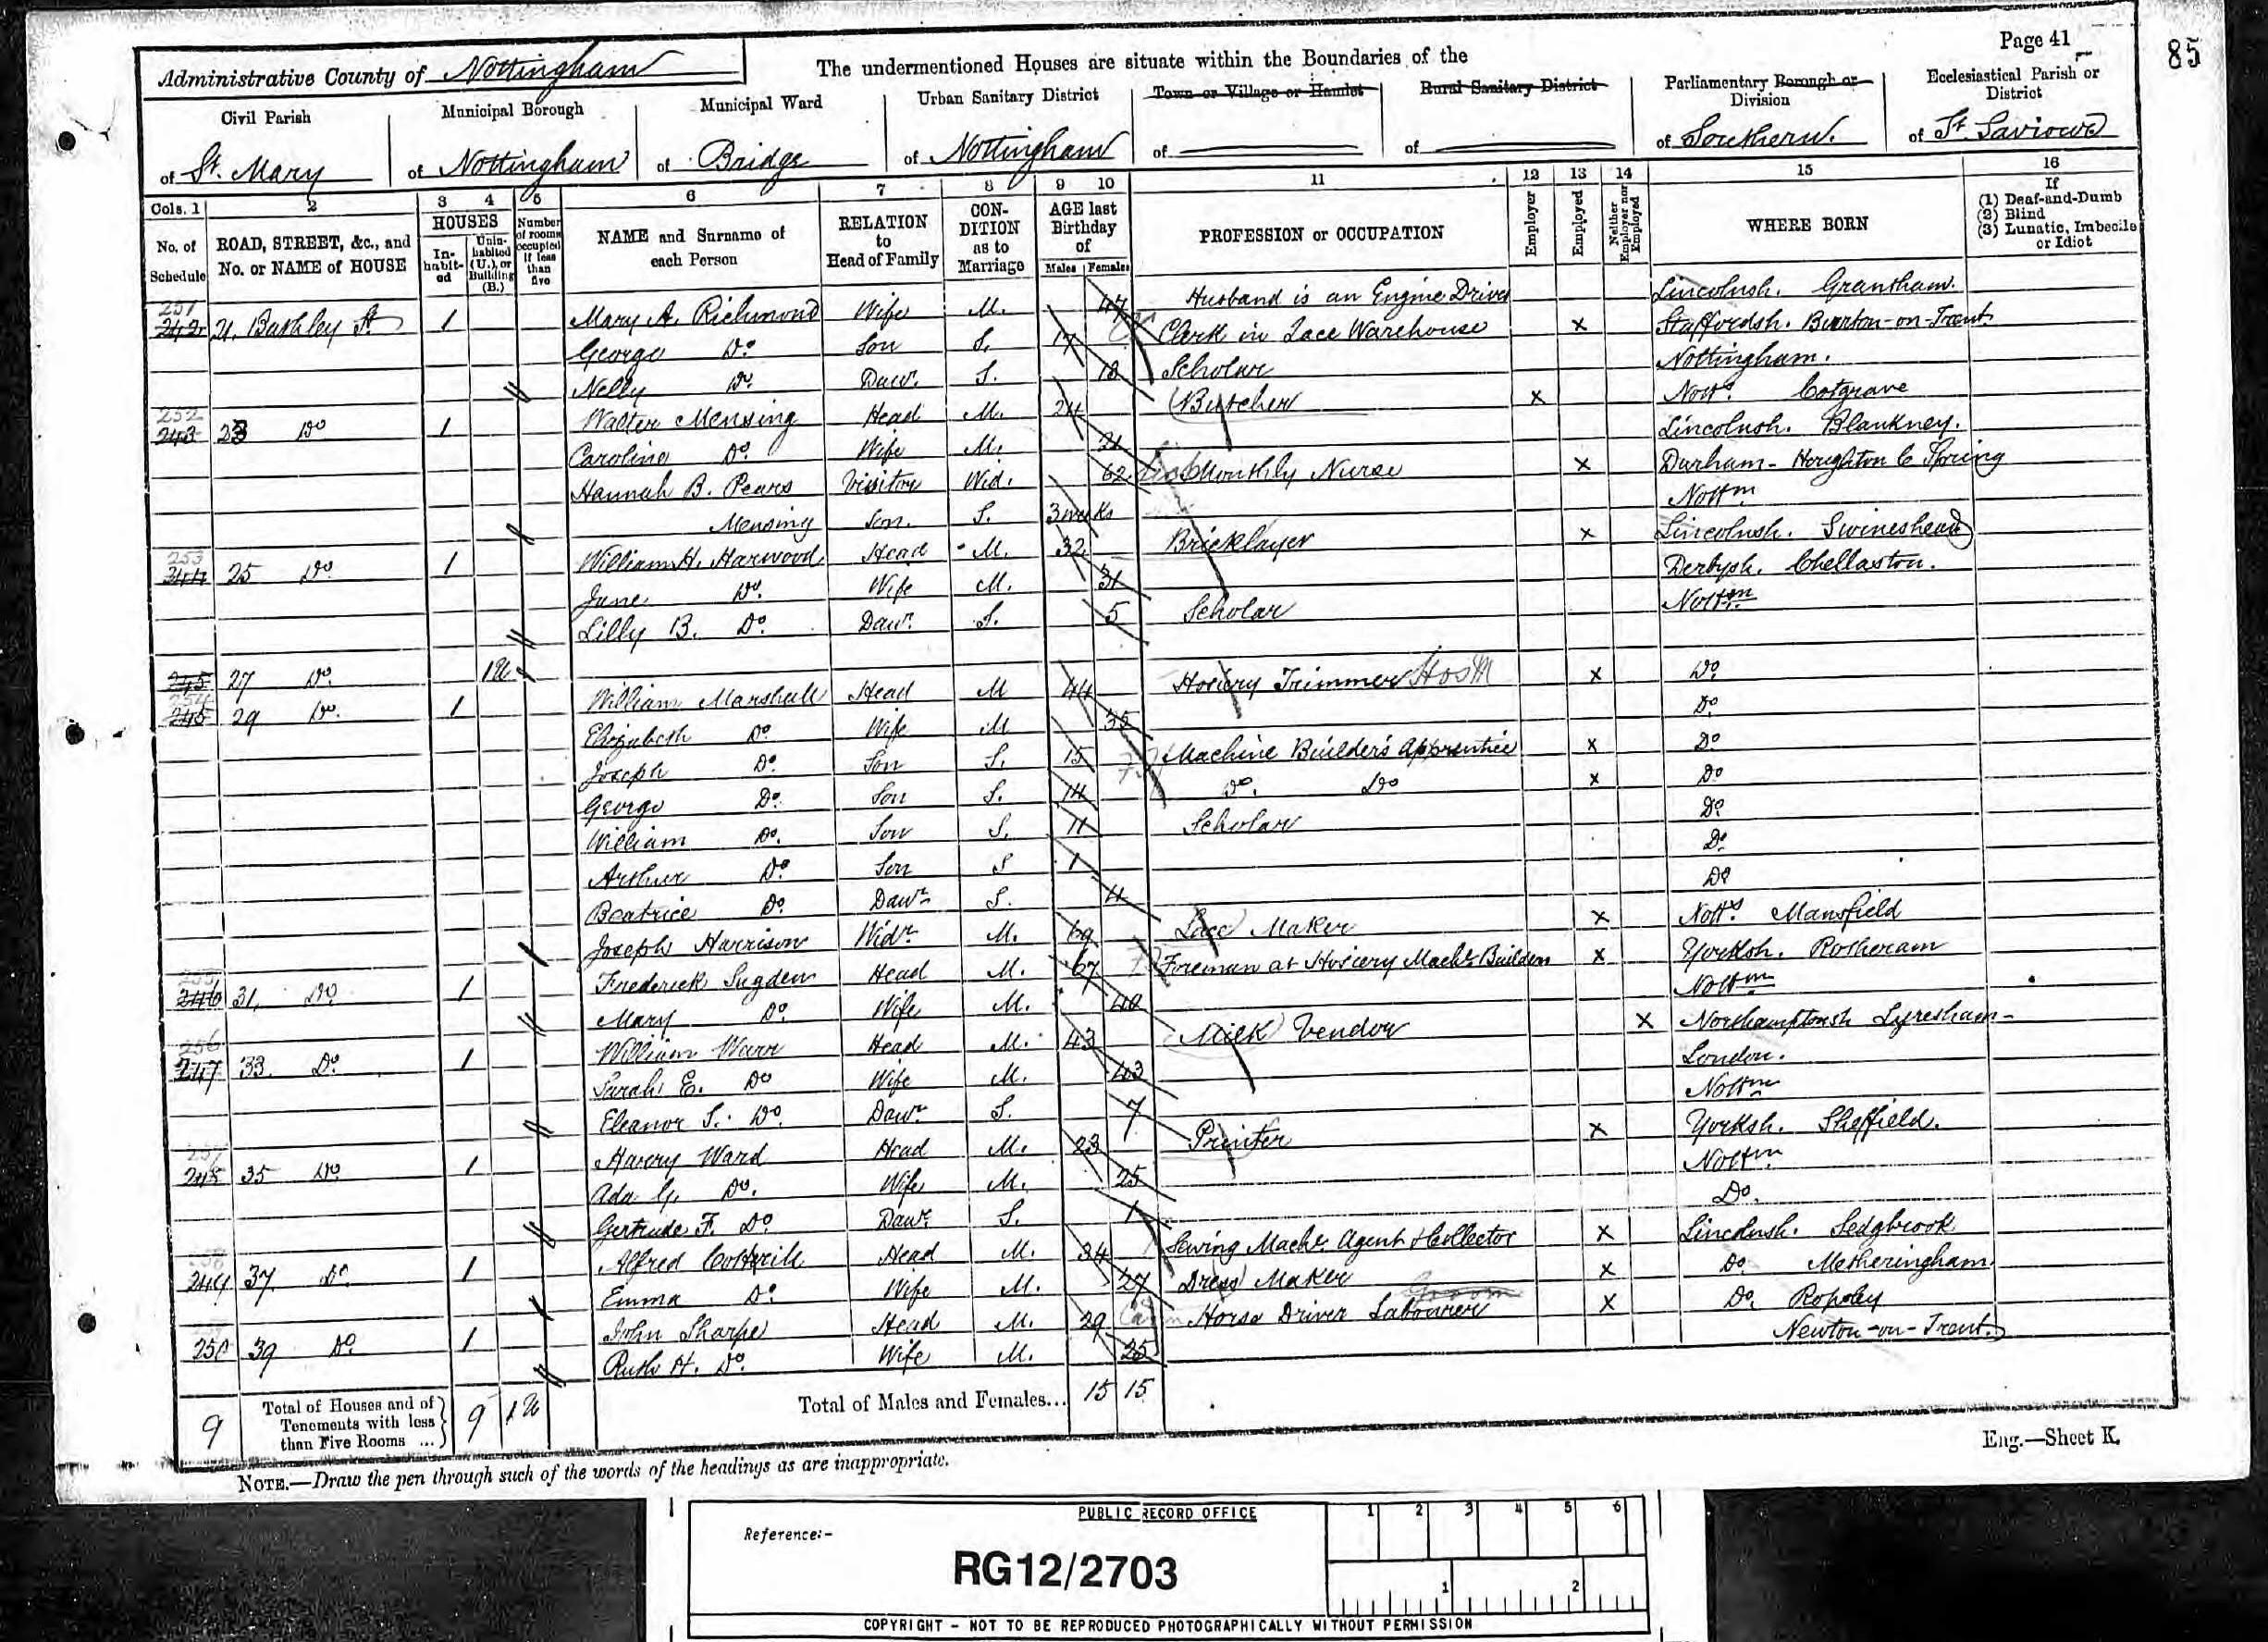 Page 41
85
Administrative County of Nottingham
The undermentioned Houses are situate within the Boundaries of the
Civil Parish of St. Mary
Municipal Borough of Nottingham
Municipal Ward of Bridge
Urban Sanitary District of Nottingham
Town or Village or Hamlet of
Rural Sanitary District of
Parliamentary Borough or Division of Southern.
Ecclesiastical Parish or District of St Saviours
Cols. 1 2 3 4 5 6 7 8 9 10 11 12 13 14 15 16
No. of Schedule
ROAD, STREET, &c., and No. or NAME of HOUSE
HOUSES
In-habit-ed
Unin-habited (U.), or Building (B.)
Number of rooms occupied if less than five
NAME and Surname of each Person
RELATION to Head of Family
CON-DITION as to Marriage
AGE last Birthday of
Males Females
PROFESSION or OCCUPATION
Employer
Employed
Neither Employer nor Employed
WHERE BORN
If
(1) Deaf-and-Dumb
(2) Blind
(3) Lunatic, Imbecile or Idiot
251 242 21, Bathley St 1 Mary A. Richmond Wife M. 47 Husband is an Engine Driver Lincolnsh. Grantham.
George Do. Son S. 17 Clerk in Lace Warehouse x Staffordsh. Burton-on-Trent.
Nelly Do. Daur. S. 12 Scholar Nottingham.
252 243 23 Do 1 Walter Mensing Head M. 24 Butcher x Notts. Cotgrave
Caroline Do. Wife M. 21 Lincolnsh. Blankney.
Hannah B. Pears Visitor Wid. 62 Monthly Nurse x Durham - Houghton le Spring
Mensing Son. S. 3 weeks Nottm
253 244 25 Do 1 William H. Harwood Head M. 32 Bricklayer x Lincolnsh. Swineshead
Jane Do. Wife M. 31 Derbysh. Chellaston.
Lilly B. Do. Daur. S. 5 Scholar Nottm
245 27 Do. 1U
254 245 29 Do. 1 William Marshall Head M 44 Hosiery Trimmer Hos M x Do.
Elizabeth Do. Wife M 35 Do.
Joseph Do. Son S. 15 Machine Builder's Apprentice x Do
George Do. Son S. 14 Do. Do x Do
William Do. Son S. 11 Scholar Do.
Arthur Do. Son S 1 Do.
Beatrice Do. Daur. S. 4 Do
Joseph Harrison Widr. M. 69 Lace Maker x Notts. Mansfield
255 246 31, Do. 1 Frederick Sugden Head M. 67 Foreman at Hosiery Mache Builders x Yorksh. Rotheram
Mary Do. Wife M. 40 Nottm
256 247 33. Do. 1 William Warr Head M. 43 Milk Vendor x Northamptonsh Syresham
Sarah E. Do Wife M. 43 London.
Eleanor S. Do. Daur. S. 7 Nottm
257 248 35 Do 1 Harry Ward Head M. 23 Printer x Yorksh. Sheffield.
Ada G. Do. Wife M. 25 Nottm
Gertrude F. Do. Daur. S. 1 Do.
258 249 37. Do. 1 Alfred Cotterill Head M. 34 Sewing Mache Agent & Collector x Lincolnsh. Sedgbrook
Emma Do. Wife M. 27 Dress Maker x Do. Metheringham
250 39 Do. 1 John Sharpe Head M. 29 Horse Driver Labourer Groom x Do. Ropsley
Ruth H. Do. Wife M. 25 Newton-on-Trent.
9 Total of Houses and of Tenements with less than Five Rooms ... 9 1U Total of Males and Females... 15 15
Eng.—Sheet K.
NOTE.—Draw the pen through such of the words of the headings as are inappropriate.
PUBLIC RECORD OFFICE
1 2 3 4 5 6
Reference:-
RG12/2703
1 2
COPYRIGHT - NOT TO BE REPRODUCED PHOTOGRAPHICALLY WITHOUT PERMISSION